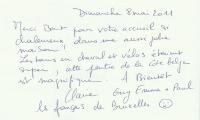 Dimanche 8 mai 2011
Merci Bart pour votre accueil si
chaleureux dans une aussi jolie
maison !
Les tours en cheval et vélos étaient
super, cette partie de la côte belge
est magnifique. A Bientôt
Claire Guy Emma + Paul
les français de Bruxelles